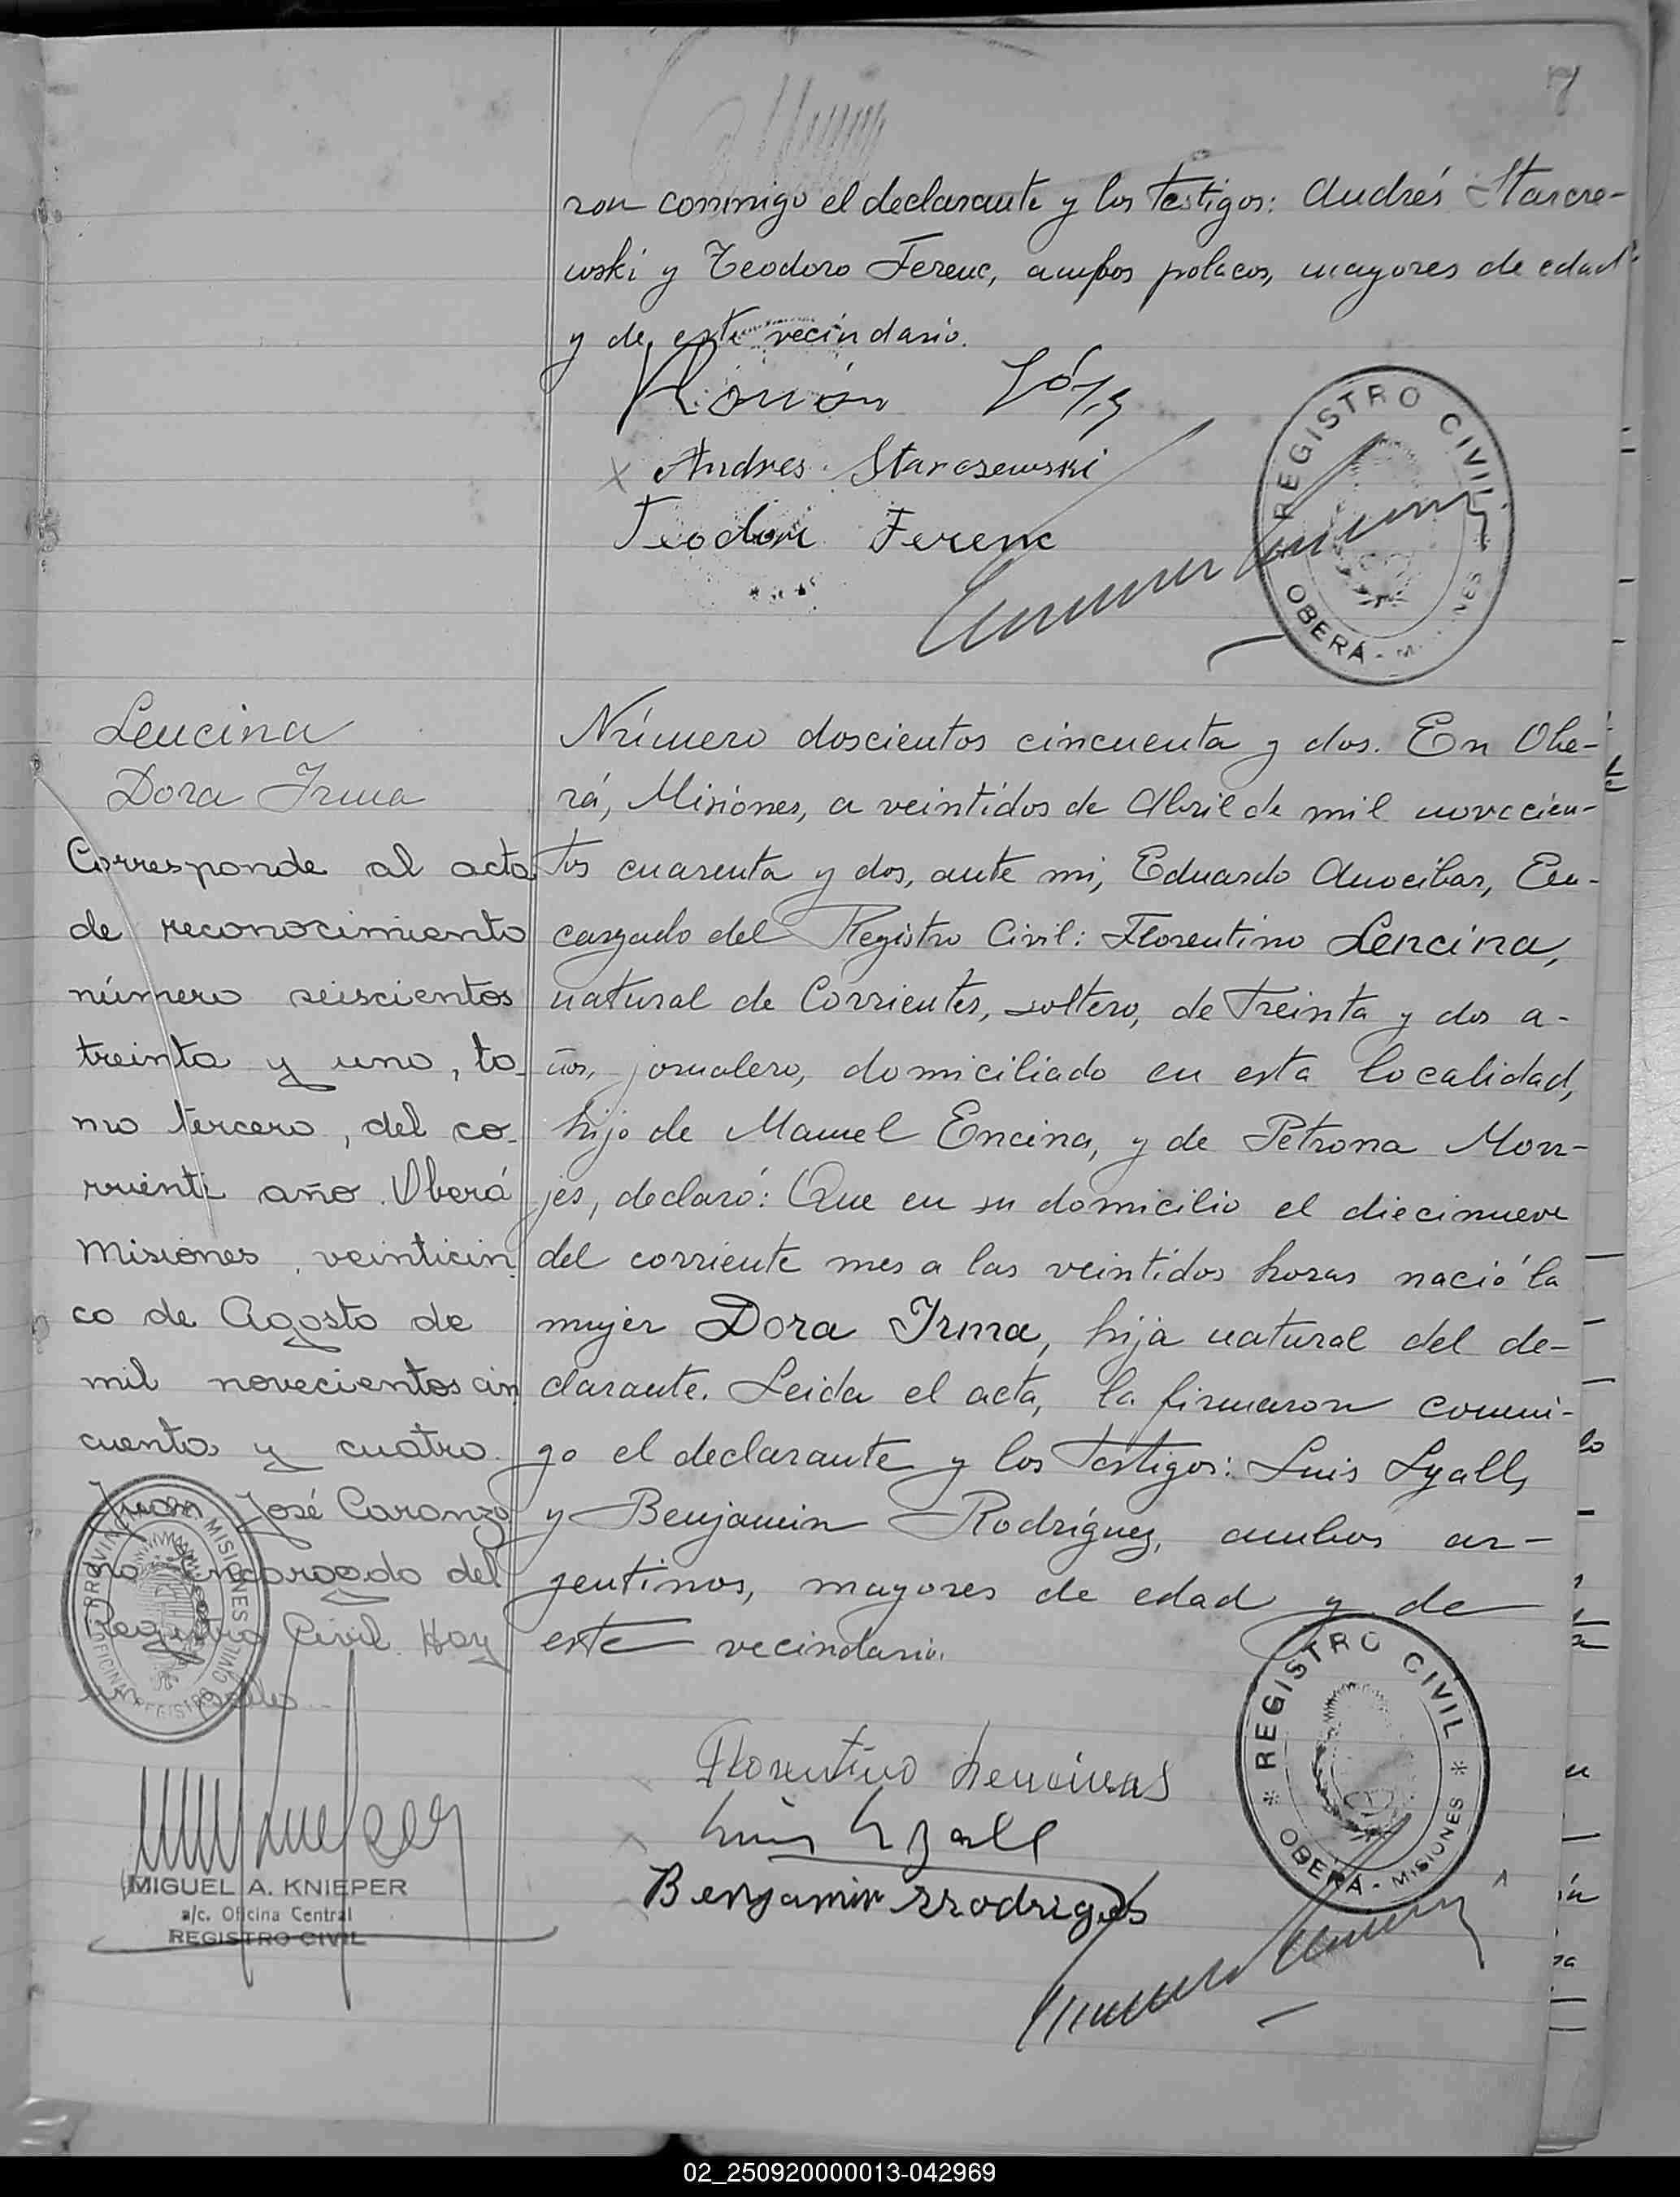 7
ron conmigo el declarante y los testigos: Andrés Starcre-
wski y Teodoro Ferenc, ambos polacos, mayores de edad
y de este vecindario.
Andres Starosewski
Teodor Ferenc
REGISTRO CIVIL
OBERÁ - MISIONES
Lencina
Dora Irma
Corresponde al acta
de reconocimiento
número seiscientos
treinta y uno, to-
mo tercero, del co-
rriente año. Oberá
Misiones, veinticin-
co de Agosto de
mil novecientos cin
cuenta y cuatro.
Juan José Caranzo
no Encargado del
Registro Civil. Hay
un sello
PROVINCIA DE MISIONES
OFICINA REGISTRO CIVIL
MIGUEL A. KNIEPER
a/c. Oficina Central
REGISTRO CIVIL
Número doscientos cincuenta y dos. En Obe-
rá, Misiones, a veintidos de Abril de mil novecien-
tos cuarenta y dos, ante mi, Eduardo Anocibar, En-
cargado del Registro Civil: Florentino Lencina,
natural de Corrientes, soltero, de treinta y dos a-
ños, jornalero, domiciliado en esta localidad,
hijo de Manuel Encina, y de Petrona Mon-
jes, declaró: Que en su domicilio el diecinueve
del corriente mes a las veintidos horas nació la
mujer Dora Irma, hija natural del de-
clarante. Leida el acta, la firmaron conmi-
go el declarante y los testigos: Luis Lyall,
y Benjamin Rodríguez, ambos ar-
gentinos, mayores de edad y de
este vecindario.
Florentino Lencinas
Luis Lyall
Benjamin Rrodrigues
REGISTRO CIVIL
OBERÁ - MISIONES
02_250920000013-042969